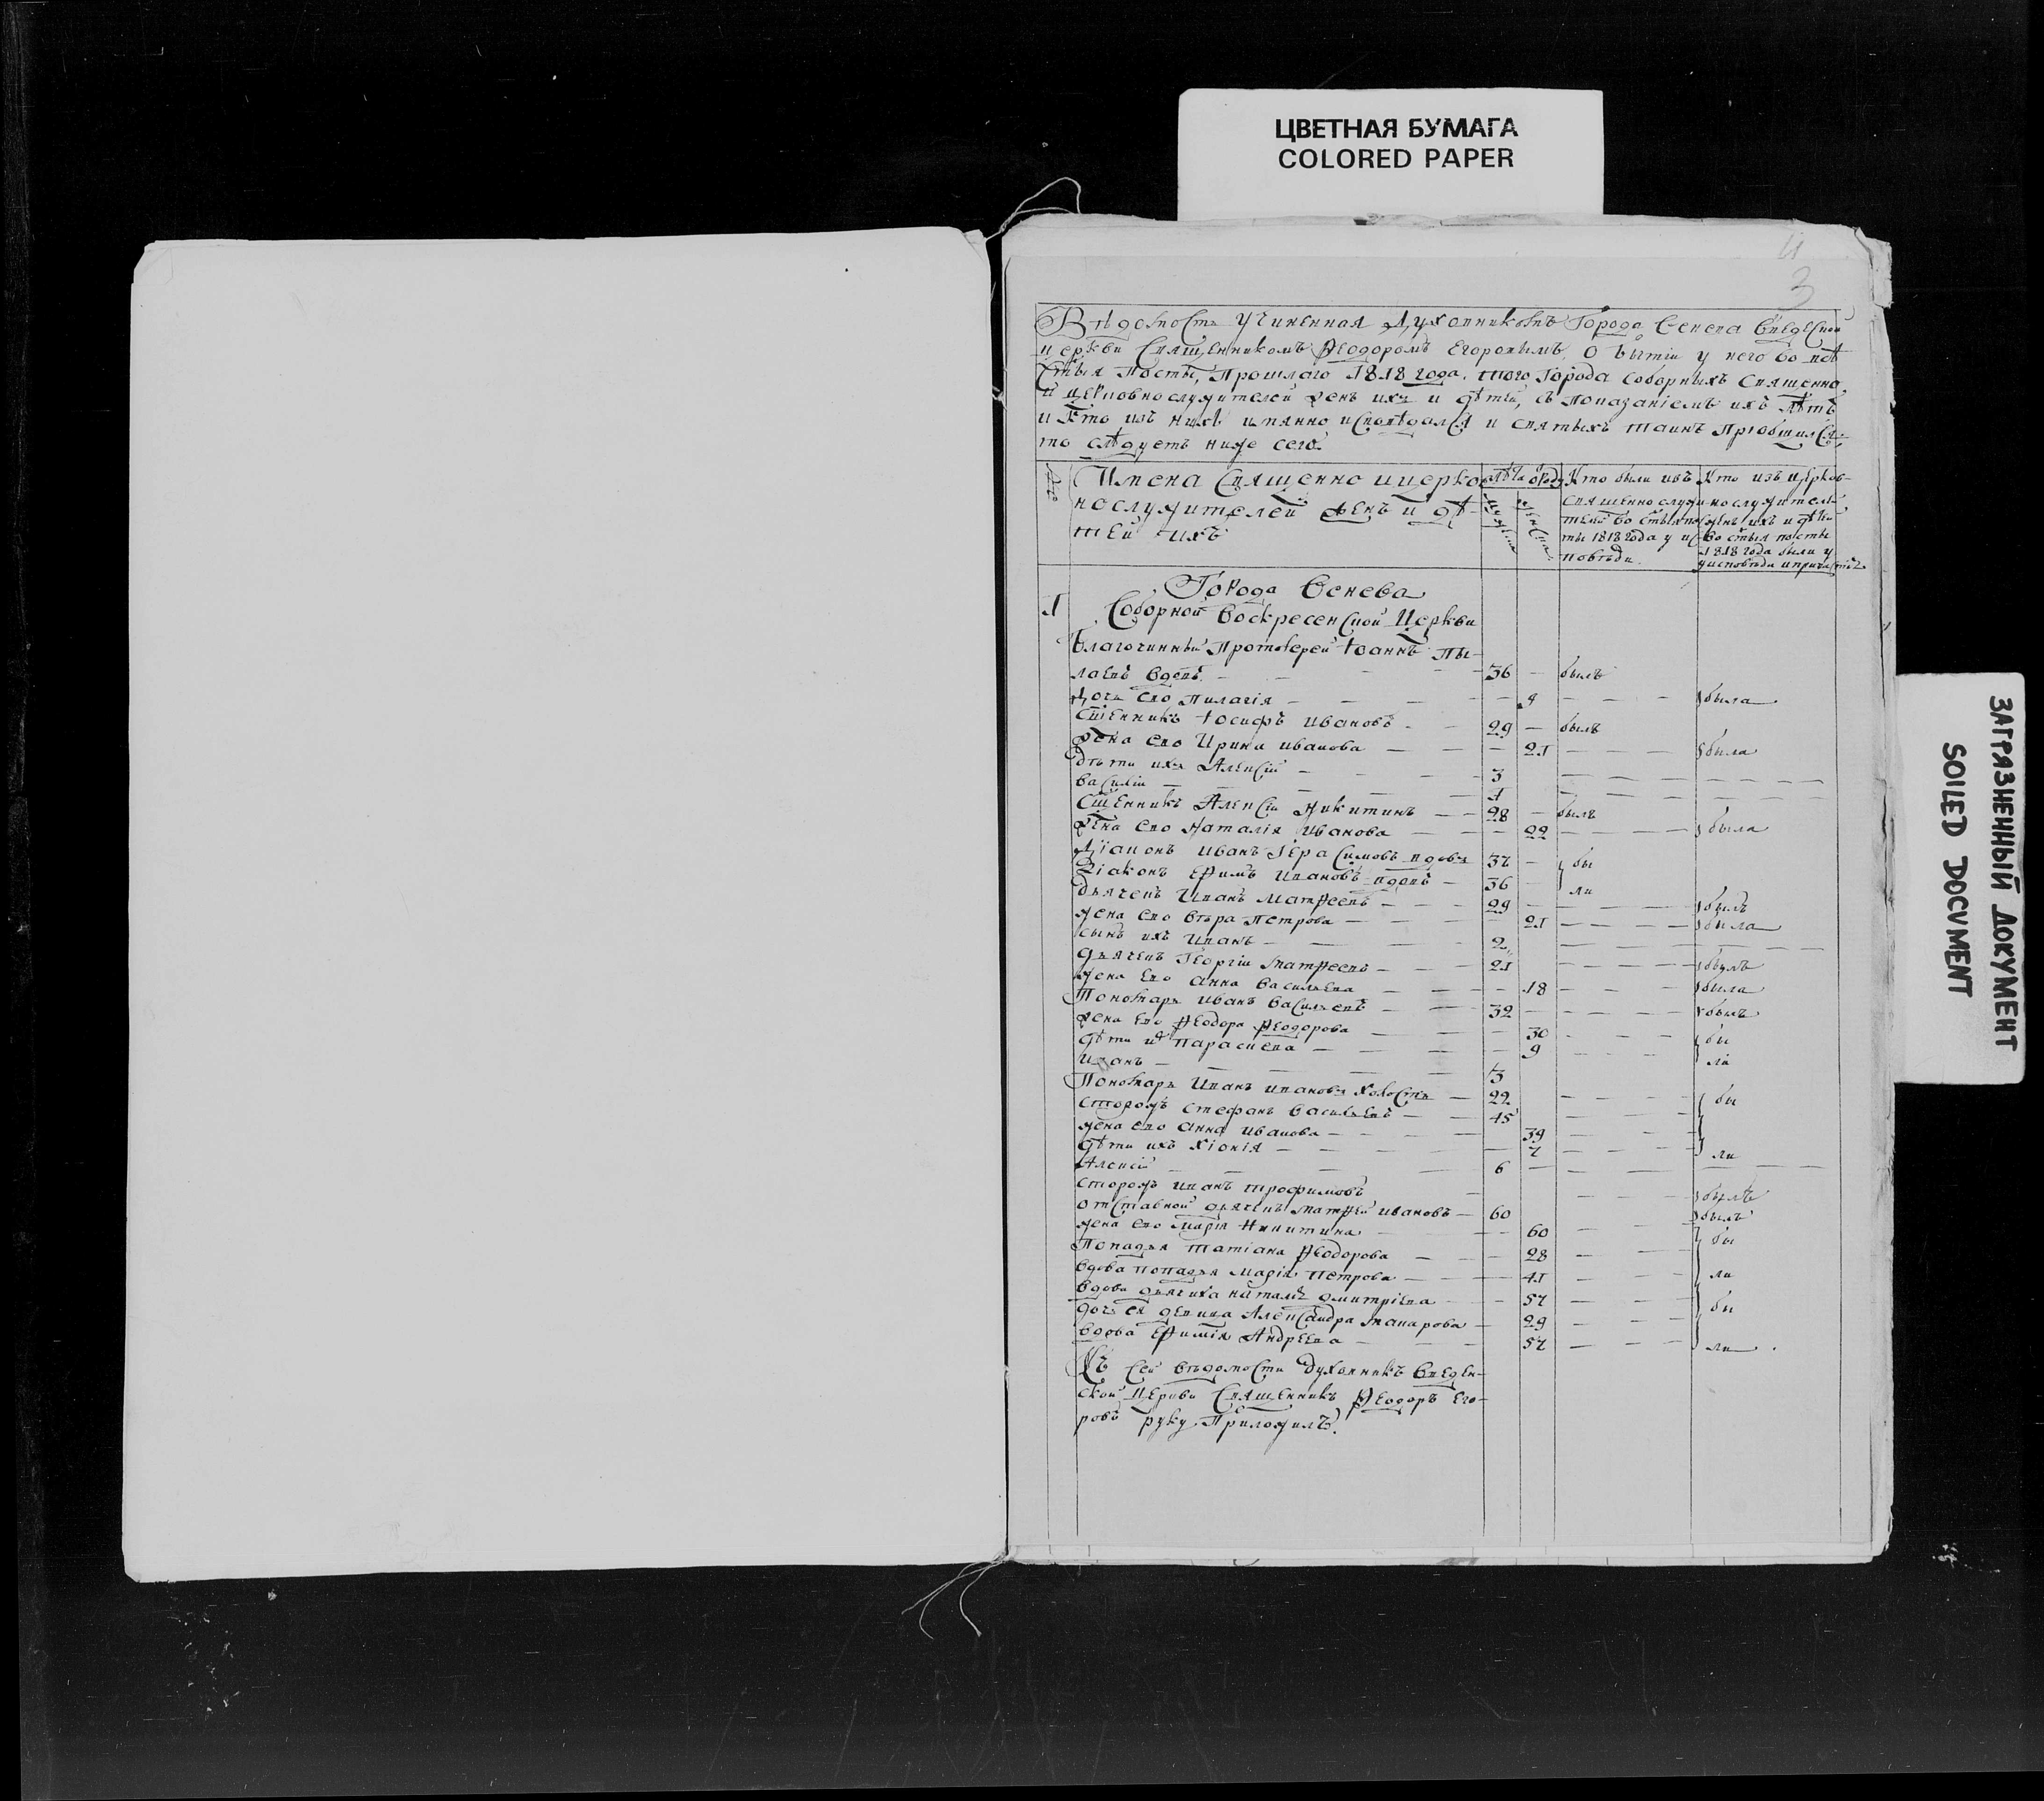 ЦВЕТНАЯ БУМАГА
COLORED PAPER
3
Вѣдомость учиненная Духовникомъ Города Венева Введенской
церкви Священникомъ Ѳеодоромъ Егоровымъ, О бытіи у него во всѣ
стыя посты, Прошлаго 1818 года. того Города соборныхъ Священно
и церковнослужителей женъ ихъ и дѣтей, съ показаніемъ ихъ лѣтъ
и кто изъ нихъ имянно исповѣдался и святыхъ таинъ Пріобщился
то слѣдуетъ ниже сего.
Имена Священно и церков
нослужителей женъ и дѣ-
тей ихъ
Кто были изъ
священнослужи
телей во стыя пос
ты 1818 года у ис
повѣди.
Кто изъ церков-
нослужителей
женъ ихъ и дѣтей
во стыя посты
1818 года были у
исповѣди и причастія
Города Венева
1 Соборной Воскресенской Церкви
Благочинный Протоіерей Іоаннъ Пы-
лаевъ вдовъ — 36 — былъ
Дочь его Пилагія — 9 — была
Сщенникъ Іосифъ Ивановъ — 29 — былъ
Жена его Ирина Иванова — 21 — была
Дѣти ихъ Алексій — 3
Василій — 1
Сщенникъ Алексій Никитинъ — 28 — былъ
Жена его Наталія Иванова — 22 — была
Діаконъ Иванъ Герасимовъ вдовъ 37 — бы
Діаконъ Ефимъ Ивановъ вдовъ — 36 — ли
Дьячекъ Иванъ Матвеевъ — 29 — былъ
Жена его Вѣра Петрова — 21 — была
Сынъ ихъ Иванъ — 2
Дьячекъ Георгій Матвеевъ — 21 — былъ
Жена его Анна Васильева — 18 — была
Пономарь Иванъ Васильевъ — 32 — былъ
Жена его Ѳеодора Ѳеодорова — 30 — бы
Дѣти их Парасκева — 9 — ли
Иванъ — 3
Пономарь Иванъ Ивановъ холостъ — 22 — бы
Сторожъ Стефанъ Васильевъ — 45
Жена его Анна Иванова — 39
Дѣти ихъ Хіонія — 7 — ли
Алексій — 6
Сторожъ Иванъ Трофимовъ — былъ
Отставной дьячекъ Матвей Ивановъ — 60 — былъ
Жена его Марія Никитина — 60 — бы
Попадья Татіана Ѳеодорова — 28
Вдова попадья Марія Петрова — 41 — ли
Вдова дьячиха Наталія Дмитріева — 57 — бы
Дочь ея девица Александра Макарова — 29
Вдова Ефимія Андреева — 57 — ли.
Къ сей вѣдомости Духовникъ Введен-
ской Церкви Священникъ Ѳеодоръ Его-
ровъ руку Приложилъ.
ЗАГРЯЗНЕННЫЙ ДОКУМЕНТ
SOILED DOCUMENT